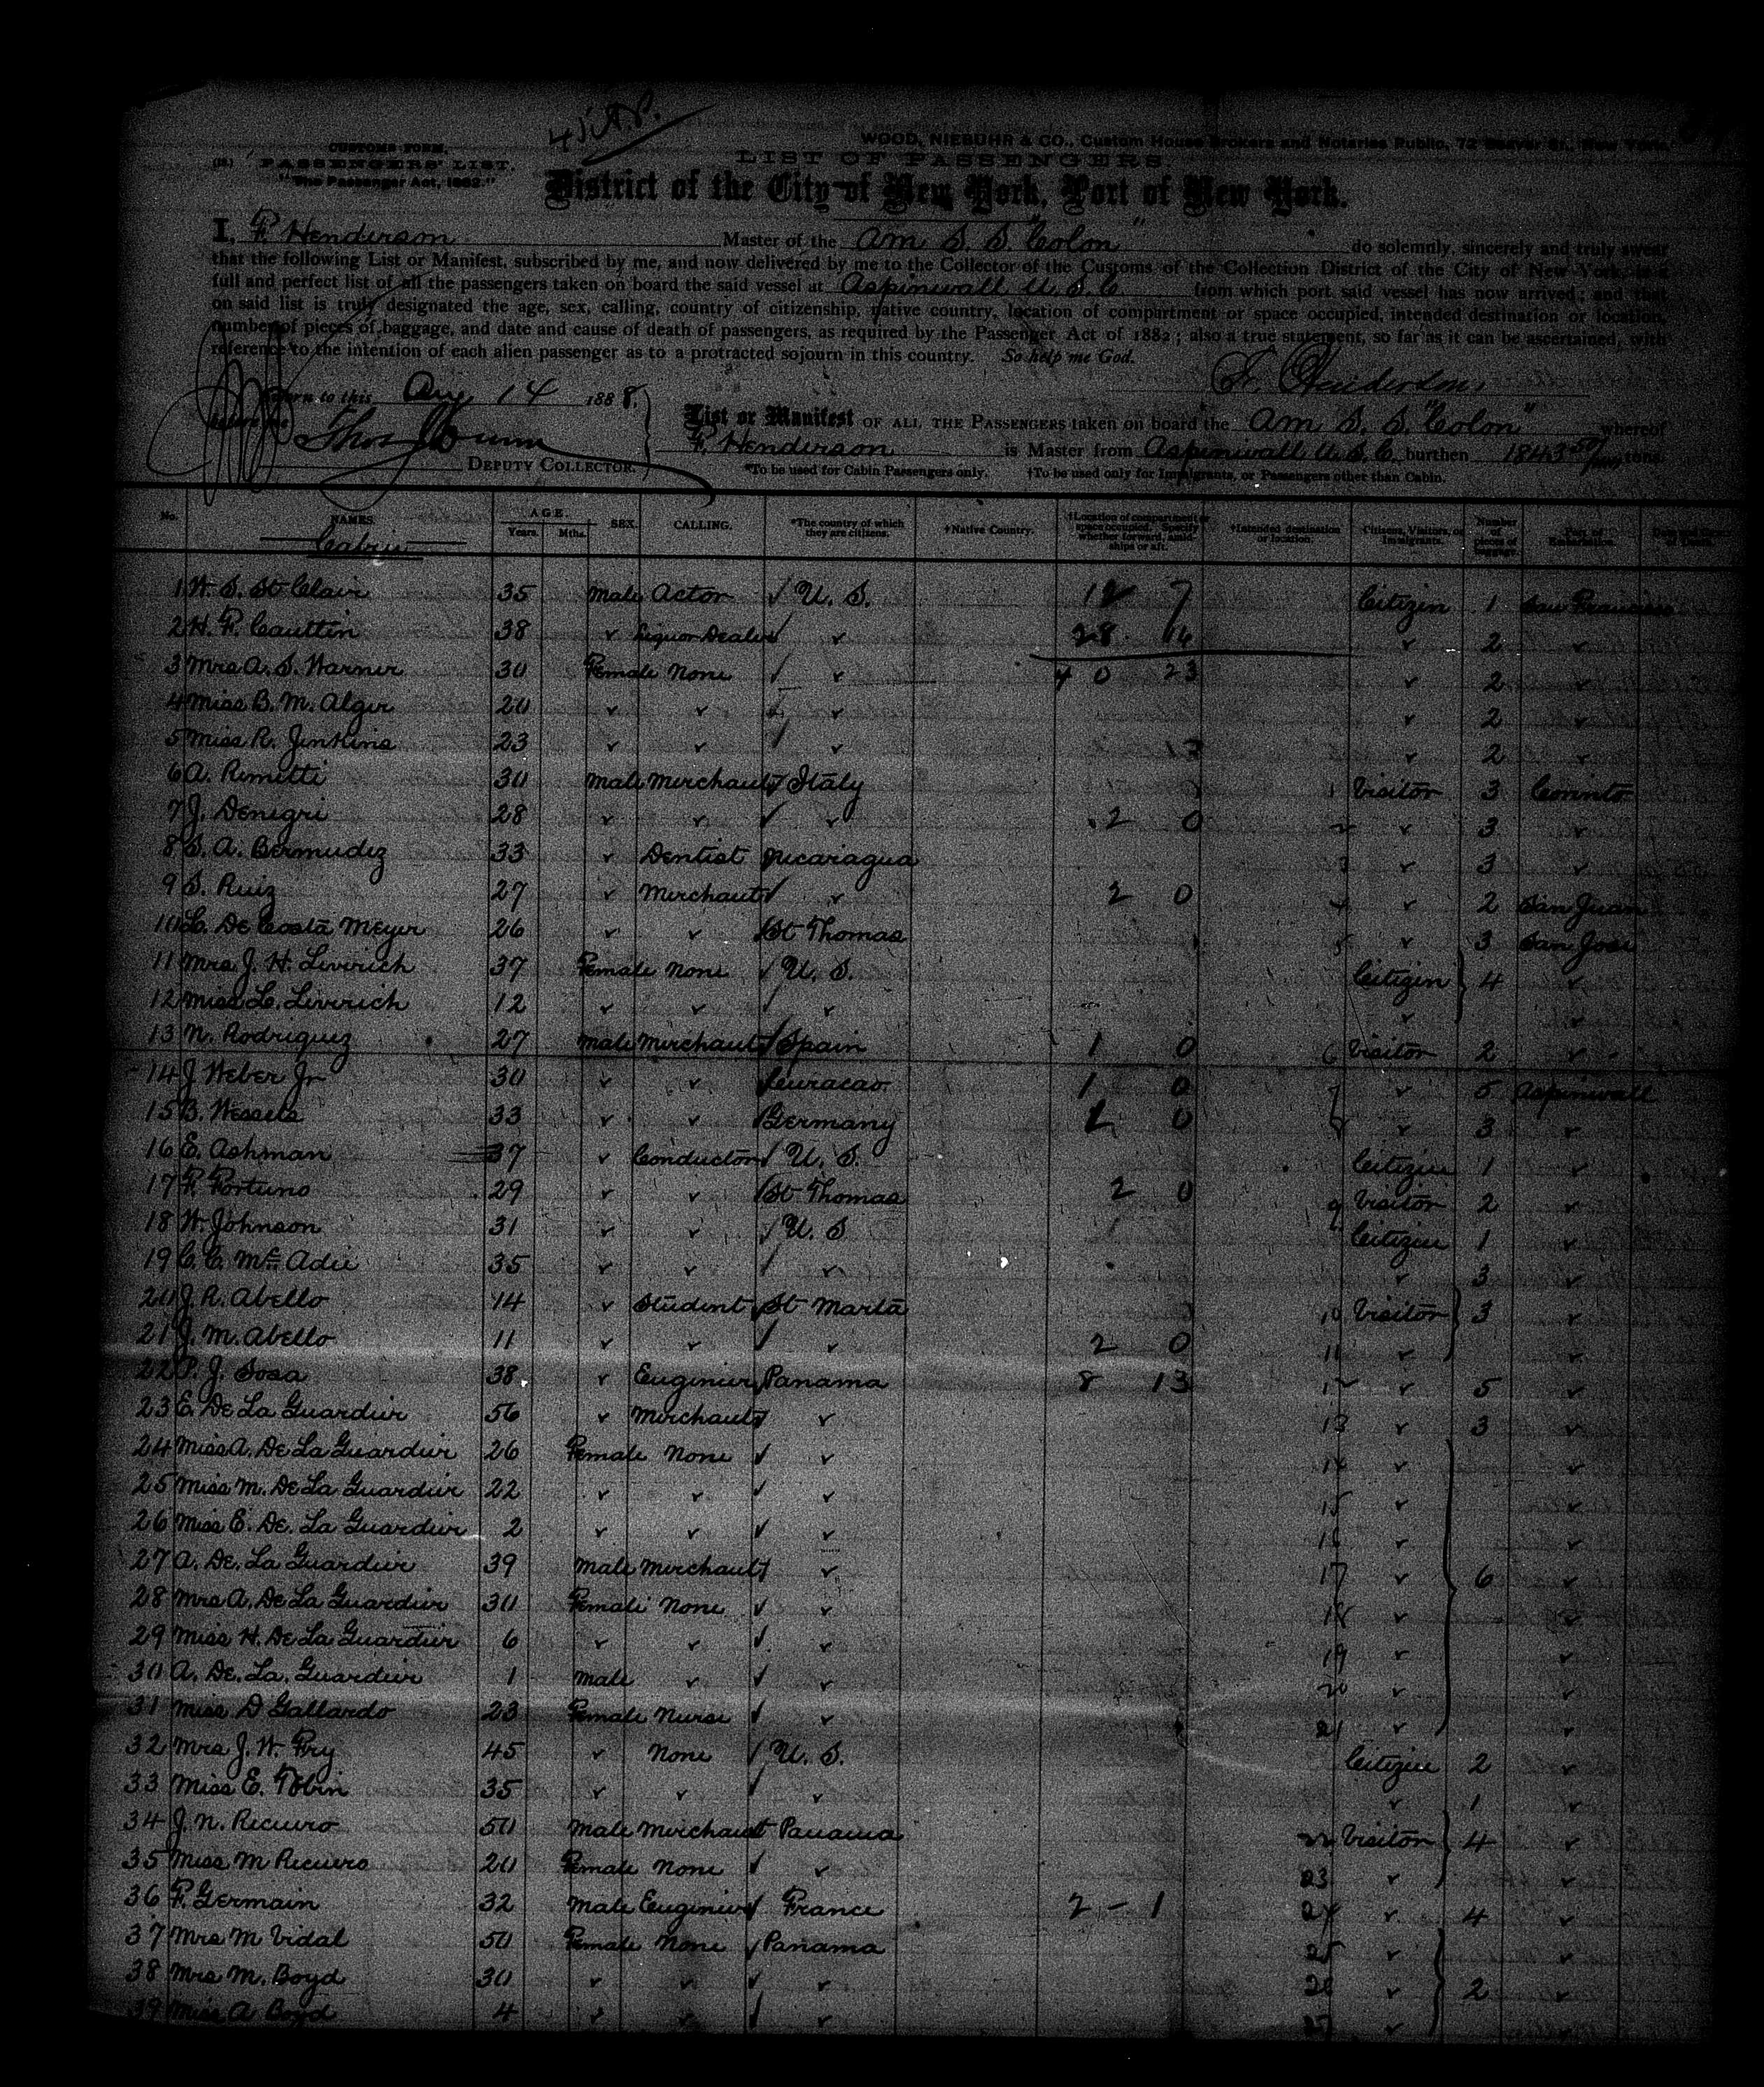 45 A.P.
WOOD, NIEBUHR & CO., Custom House Brokers and Notaries Public, 72 Beaver St., New York.
CUSTOMS FORM.
PASSENGERS' LIST.
"The Passenger Act, 1882."
LIST OF PASSENGERS.
District of the City of New York, Port of New York.
I, F. Henderson Master of the Am S. S. "Colon" do solemnly, sincerely and truly swear
that the following List or Manifest, subscribed by me, and now delivered by me to the Collector of the Customs of the Collection District of the City of New York, is a
full and perfect list of all the passengers taken on board the said vessel at Aspinwall U.S.C. from which port said vessel has now arrived; and that
on said list is truly designated the age, sex, calling, country of citizenship, native country, location of compartment or space occupied, intended destination or location,
number of pieces of baggage, and date and cause of death of passengers, as required by the Passenger Act of 1882; also a true statement, so far as it can be ascertained, with
reference to the intention of each alien passenger as to a protracted sojourn in this country. So help me God.
F. Henderson
Sworn to this Aug 14 1888.
before me
Thos J Dunn
DEPUTY COLLECTOR.
List or Manifest OF ALL THE PASSENGERS taken on board the Am S. S. "Colon" whereof
F. Henderson is Master from Aspinwall U.S.C. burthen 1843 tons
*To be used for Cabin Passengers only. †To be used only for Immigrants, or Passengers other than Cabin.
No. NAMES. AGE. Years. Mths. SEX. CALLING. *The country of which they are citizens. †Native Country. †Location of compartment or space occupied. Specify whether forward, amidships or aft. †Intended destination or location. Citizens, Visitors, or Immigrants. Number of pieces of baggage. Port of Embarkation. Date and Cause of Death.
Cabin
1 W. S. St Clair 35 Male Actor ✓ U. S. 12 7 Citizen 1 San Francisco
2 H. P. Cauttin 38 ✓ Liquor Dealer ✓ ✓ 28 16 ✓ 2 ✓
3 Mrs A. S. Warner 30 Female None ✓ ✓ 40 23 ✓ 2 ✓
4 Miss B. M. Alger 20 ✓ ✓ ✓ ✓ ✓ 2 ✓
5 Miss R. Jenkins 23 ✓ ✓ ✓ ✓ 13 ✓ 2 ✓
6 A. Rimetti 30 Male Merchant ✓ Italy 1 Visitor 3 Corinto
7 J. Denegri 28 ✓ ✓ ✓ ✓ 2 0 2 ✓ 3 ✓
8 S. A. Bermudez 33 ✓ Dentist Nicaragua 3 ✓ 3 ✓
9 S. Ruiz 27 ✓ Merchant ✓ ✓ 2 0 4 ✓ 2 San Juan
10 L. De Costa Meyer 26 ✓ ✓ ✓ St Thomas 5 ✓ 3 San Jose
11 Mrs J. H. Liverich 37 Female None ✓ U. S. Citizen 4 ✓
12 Miss L. Liverich 12 ✓ ✓ ✓ ✓ ✓ ✓
13 N. Rodriguez 27 Male Merchant ✓ Spain 1 0 6 Visitor 2 ✓
14 J Weber Jr 30 ✓ ✓ ✓ Curacao 1 0 7 ✓ 5 Aspinwall
15 B. Wessels 33 ✓ ✓ Germany 2 0 8 ✓ 3 ✓
16 E. Ashman 37 ✓ Conductor ✓ U. S. Citizen 1 ✓
17 P. Fortuno 29 ✓ ✓ ✓ St Thomas 2 0 9 Visitor 2 ✓
18 W Johnson 31 ✓ ✓ ✓ U. S Citizen 1 ✓
19 C. C. Mc Adie 35 ✓ ✓ ✓ ✓ ✓ 3 ✓
20 J. R. Abello 14 ✓ Student ✓ St Marta 10 Visitor 3 ✓
21 J. M. Abello 11 ✓ ✓ ✓ ✓ 2 0 11 ✓ ✓
22 P. J. Sosa 38 ✓ Enginier ✓ Panama 8 13 12 ✓ 5 ✓
23 E. De La Guardier 56 ✓ Merchant ✓ ✓ 13 ✓ 3 ✓
24 Miss A. De La Guardier 26 Female None ✓ ✓ 14 ✓ ✓
25 Miss M. De La Guardier 22 ✓ ✓ ✓ ✓ 15 ✓ ✓
26 Miss E. De. La Guardier 2 ✓ ✓ ✓ ✓ 16 ✓ ✓
27 A. De. La Guardier 39 Male Merchant ✓ ✓ 17 ✓ 6 ✓
28 Mrs A. De La Guardier 30 Female None ✓ ✓ 18 ✓ ✓
29 Miss H. De La Guardier 6 ✓ ✓ ✓ ✓ 19 ✓ ✓
30 A. De. La. Guardier 1 Male ✓ ✓ ✓ 20 ✓ ✓
31 Miss D Gallardo 23 Female Nurse ✓ ✓ 21 ✓ ✓
32 Mrs J. W. Fry 45 ✓ None ✓ U. S. Citizen 2 ✓
33 Miss E. Tobin 35 ✓ ✓ ✓ ✓ ✓ 1 ✓
34 J. N. Recuero 50 Male Merchant Panama 22 Visitor 4 ✓
35 Miss M Recuero 20 Female None ✓ ✓ 23 ✓ ✓
36 F. Germain 32 Male Enginier ✓ France 2 - 1 24 ✓ 4 ✓
37 Mrs M Vidal 50 Female None ✓ Panama 25 ✓ ✓
38 Mrs M. Boyd 30 ✓ ✓ ✓ ✓ 26 ✓ 2 ✓
39 Miss A Boyd 4 ✓ ✓ ✓ ✓ 27 ✓